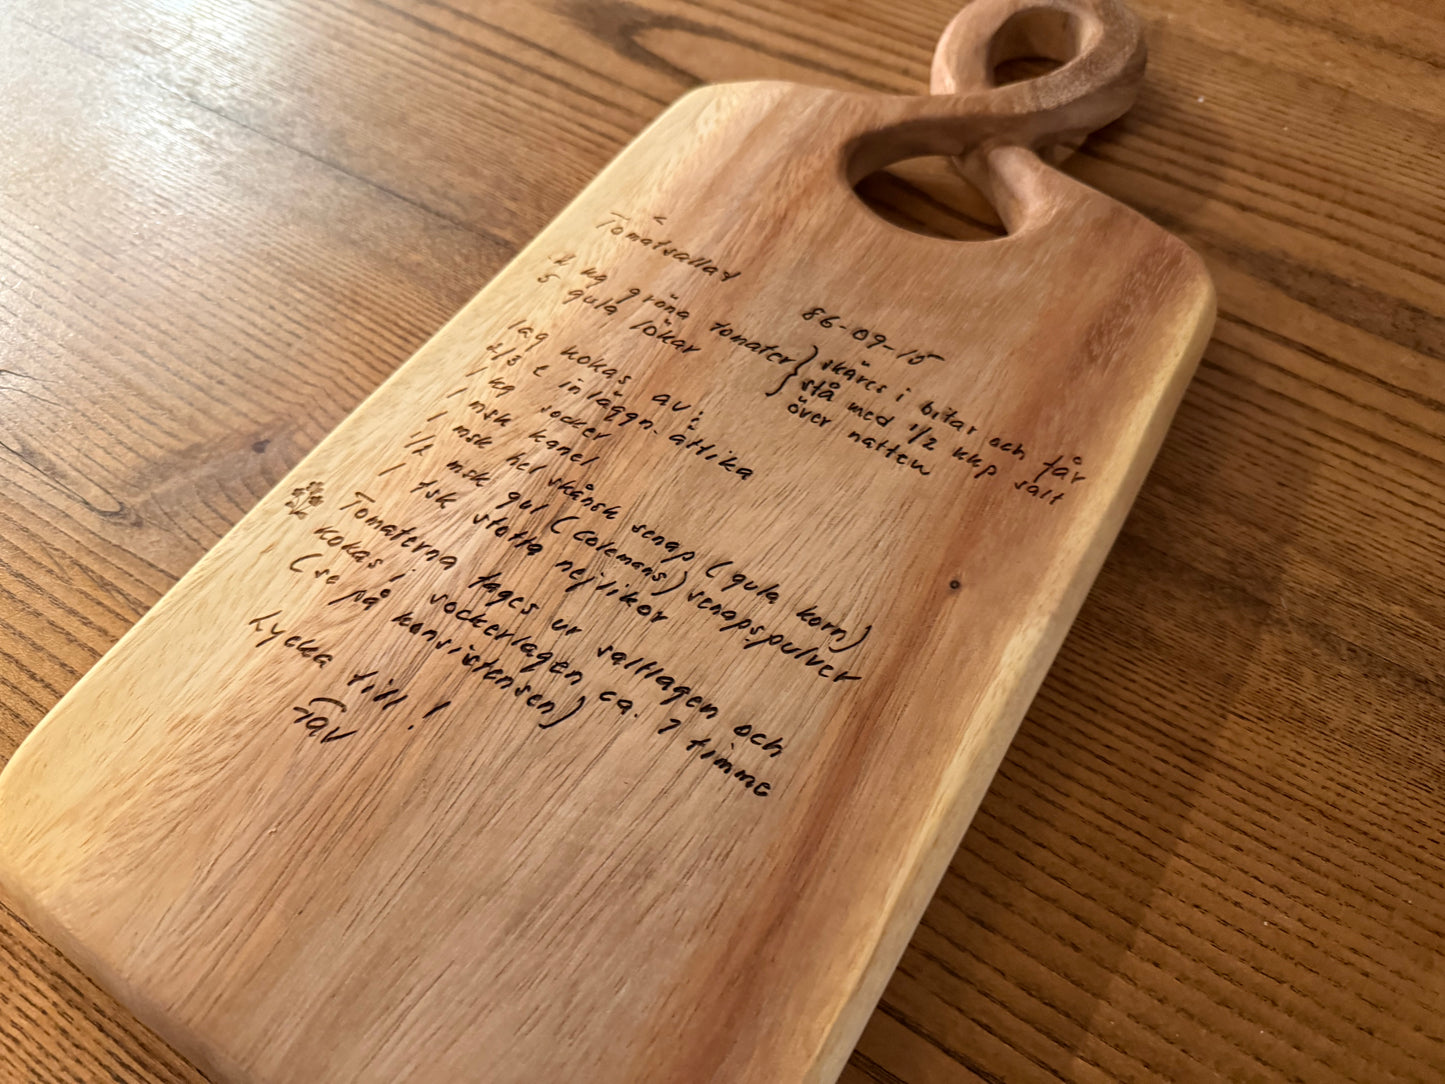 Tomatsallat
86-09-15
2 kg gröna tomater } skäres i bitar och får
5 gula lökar } stå med 1/2 kkp salt
över natten
lag kokas av:
2/3 l inläggn.ättika
1 kg socker
1 msk kanel
1 msk hel skånsk senap (gula korn)
1/2 msk gul (Colemans) senapspulver
1 tsk stötta nejlikor
Tomaterna tages ur saltlagen och
kokas i sockerlagen ca. 1 timme
(se på konsistensen)
Lycka till!
Fav